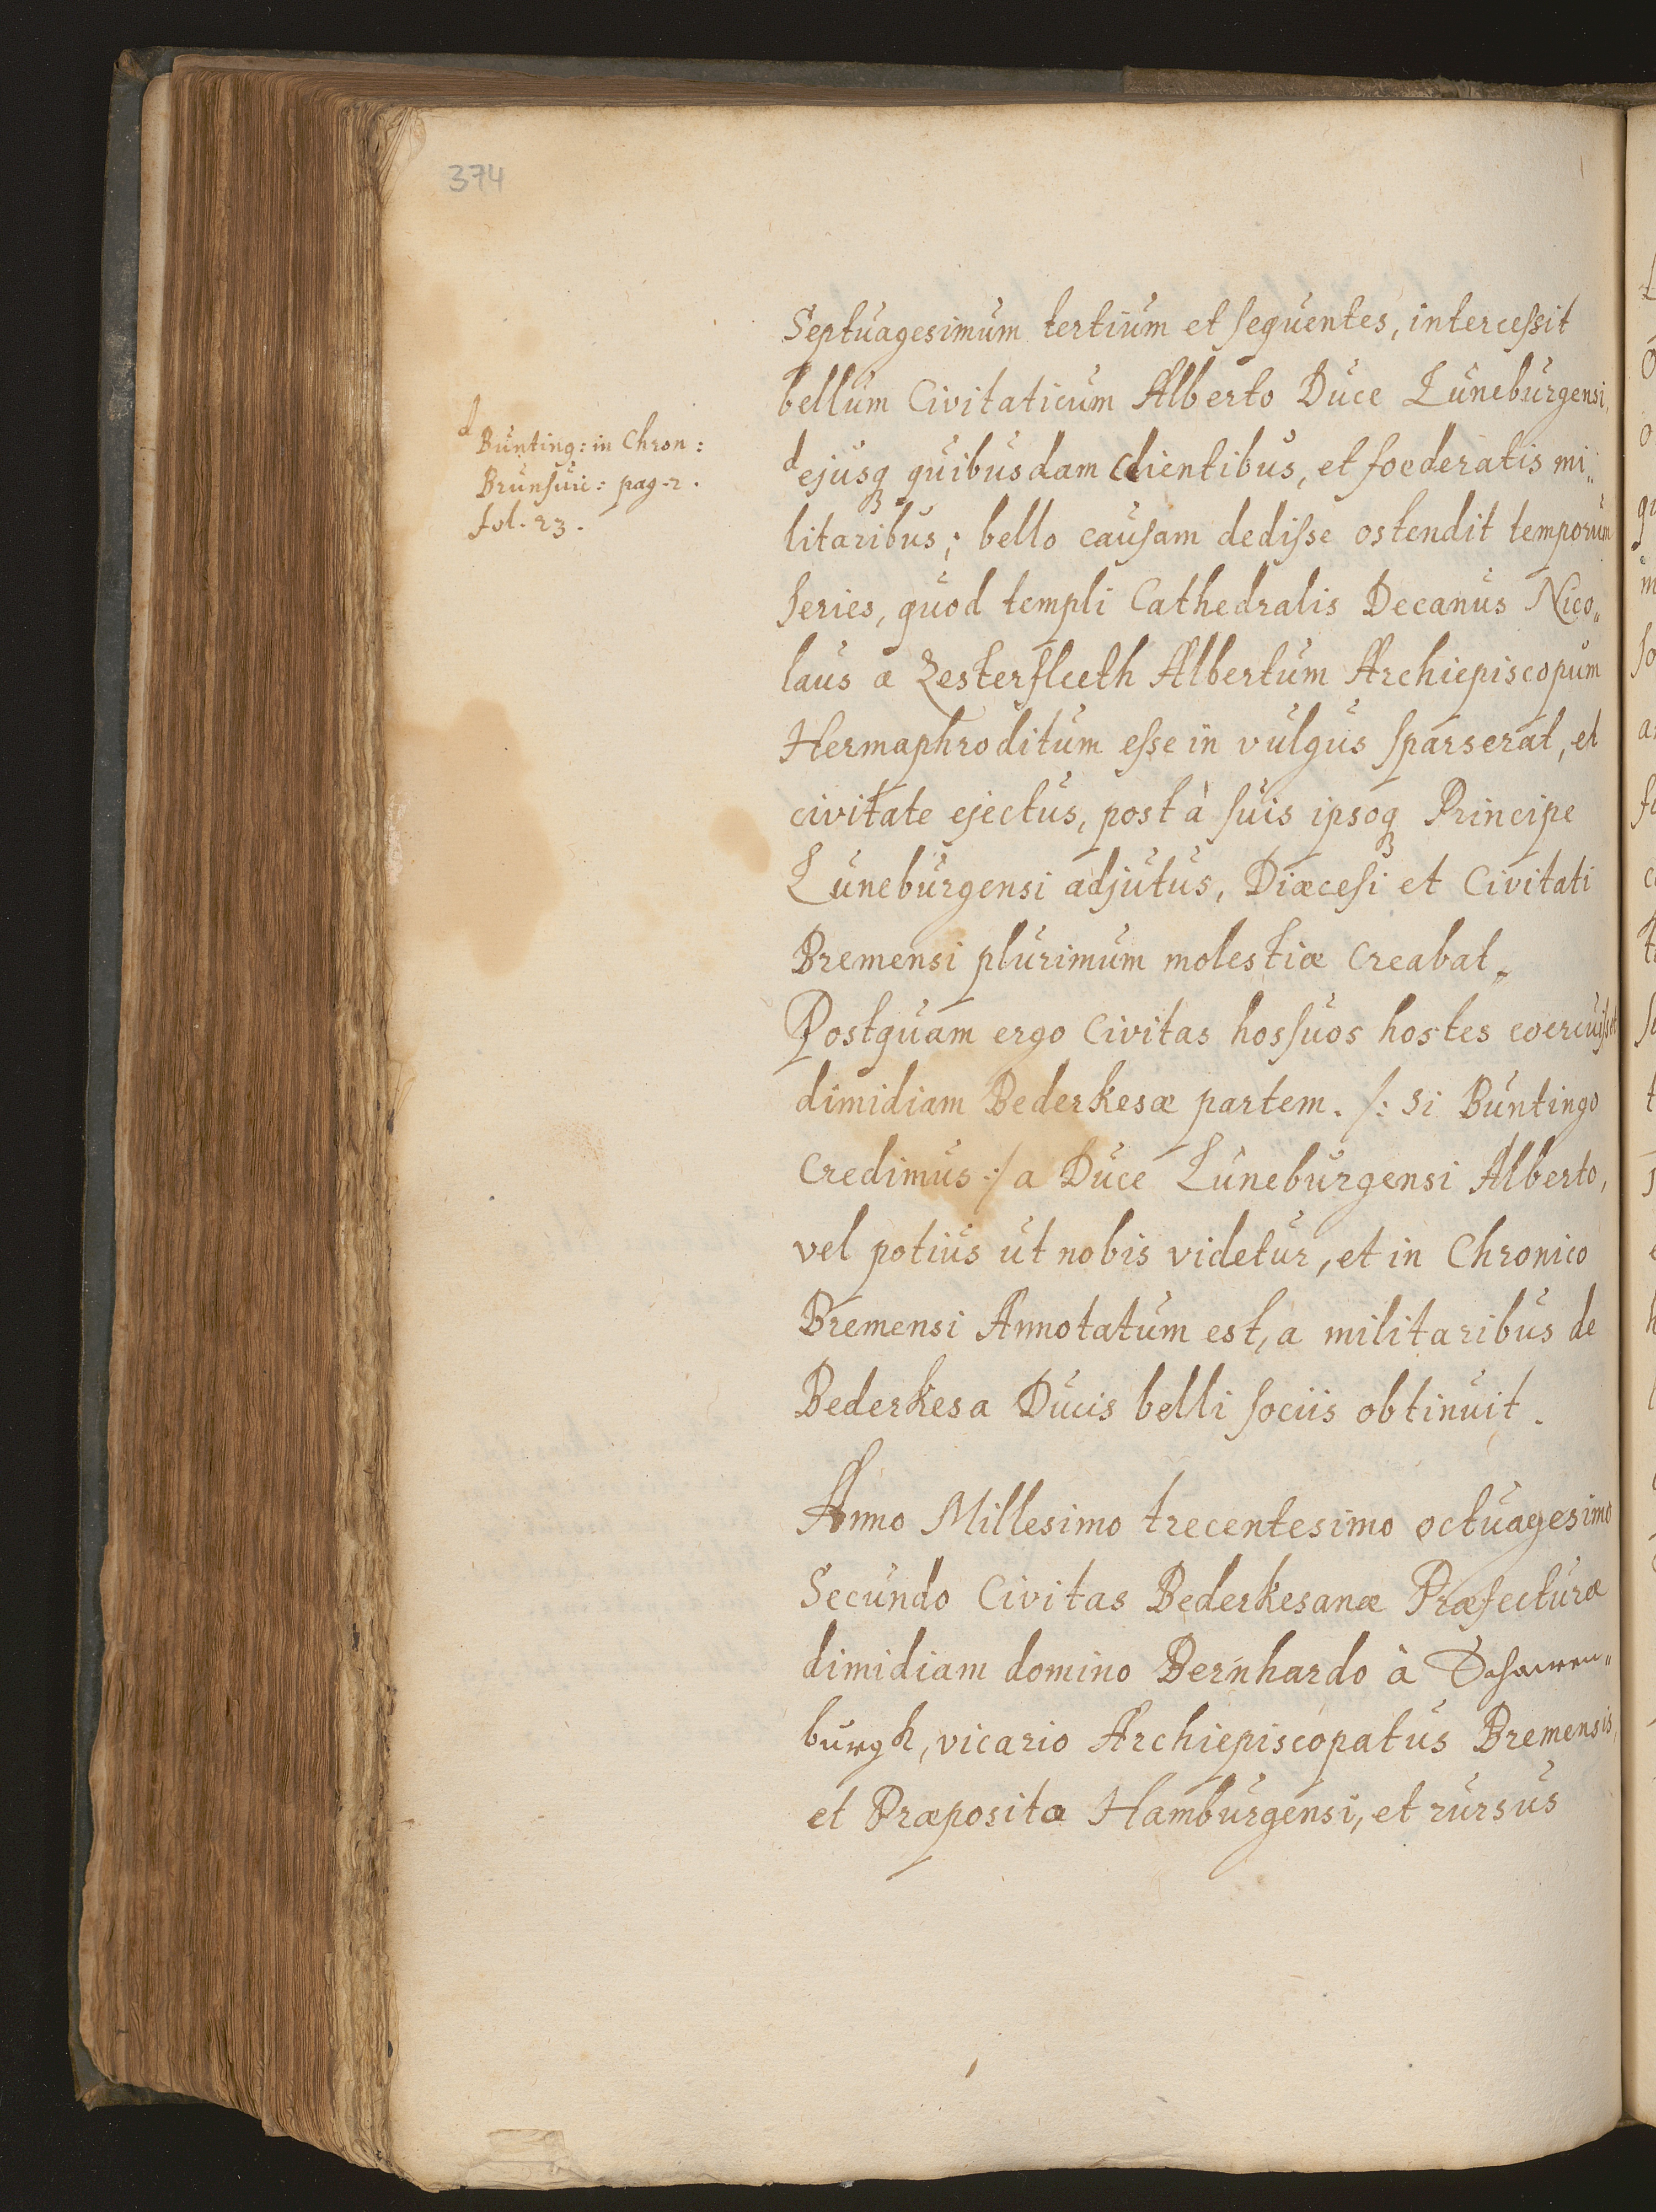 374
Septuagesimum tertium et sequentes, intercessit
bellum Civitaticum Alberto Duce Luneburgensi,
d Bunting: in Chron:
Brunsuic: pag. 2.
fol. 23.
d ejusq̃ quibusdam clientibus, et foederatis mi„
litaribus; bello causam dedisse ostendit temporum
series, quod templi Cathedralis Decanus Nico„
laus a Zesterfleeth Albertum Archiepiscopum
Hermaphroditum esse in vulgus sparserat, et
civitate ejectus, post à suis ipsoq̃ Principe
Luneburgensi adjutus, Diœcesi et Civitati
Bremensi plurimum molestiæ creabat„
Postquam ergo Civitas hos suos hostes coercuisset
dimidiam Bederkesæ partem. /: si Buntingo
credimus :/ a Duce Luneburgensi Alberto,
vel potius ut nobis videtur, et in Chronico
Bremensi Annotatum est, a militaribus de
Bederkesa Ducis belli sociis obtinuit.
Anno Millesimo trecentesimo octuagesimo
Secundo Civitas Bederkesanæ Præfecturæ
dimidiam domino Bernhardo à Schauwen„
burgh, vicario Archiepiscopatus Bremensis,
et Præposito Hamburgensi, et rursus